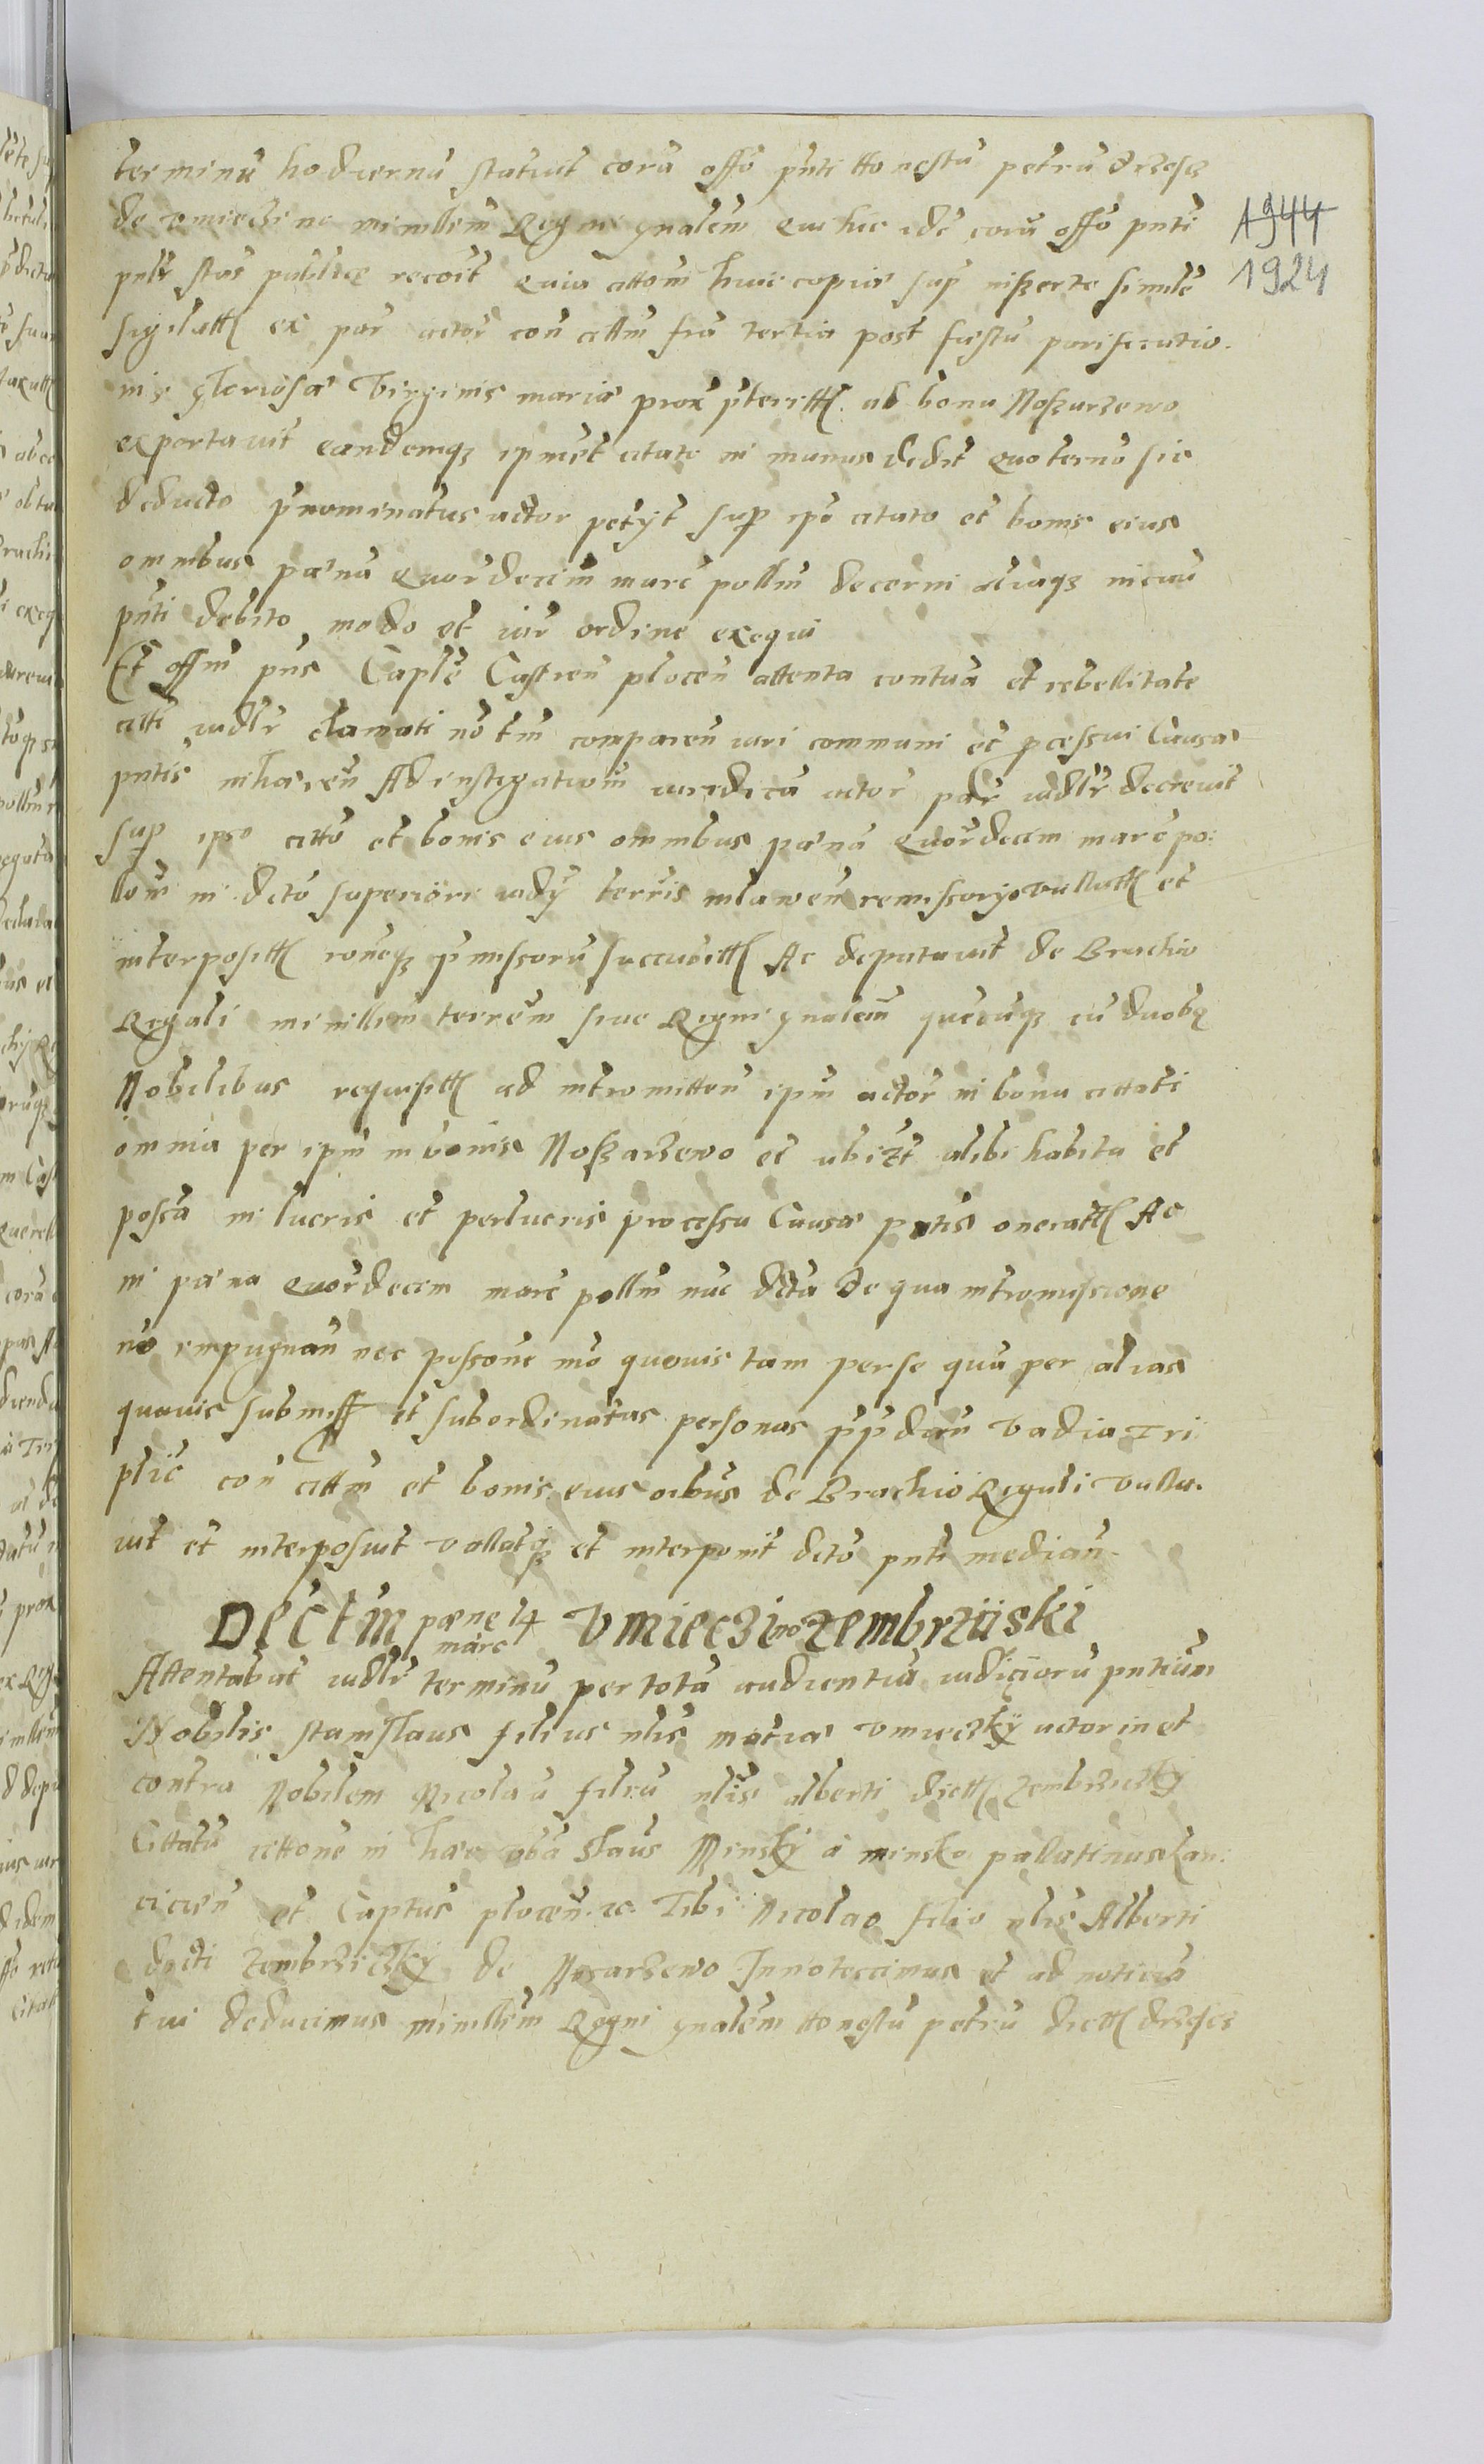 terminũ hodiernũ statuit corã offo pñti Honestũ petrũ drzesz
de vmieczino minillem Regni gnalem Qui hic idẽ corã offõ pñti
pñlr stãs publice recoit Quia attom huic copiæ sup inserte simile
sigilatt ex par actor con attm fria tertia post festũ purificatio.
nis gloriosæ virginis mariæ prox pterittt. ad bona Noszarzewo
exportavit eandemqz ipmet citato in manus dedit quo termõ sic
deducto pnominatus actor petyt sup ipõ citato et bonis eius
omnibus pænã quordecim marc pollm decerni
pñti debito modo et iur ordine exequi
Et offm pñs Caplẽ Castren plocen attenta contuã et rebellitate
citti iudlr clamati nõ tm comparen iuri communi et pcessui Causæ
pntis inhæren Ad instigationi iuridicã actor par iudlr decrevit
sup ipso cittõ et bonis eius omnibus pænã quordecim marc po:
llom in dctõ superiori iudỹ terris mlawen remissorio vallatt et
interpositt roneqz pmissorũ succubitt Ac deputavit de Brachio
Regali minillem terrem sive Regni gnalem quecuqz cũ duobq
Nobilibus requisitt ad intromitten ipm actor in bona cittati
omnia per ipm in bonis Noszarzewo et ubizt alibi habita et
possã in lucris et perlucris processu Causæ pntis oneratt Ac
in pæna quordecim marc pollm nuc dctã De qua intromissione
nõ impugnan nec possone mõ quovis tam per se quã per alias
quavis submiss et subordinatas personas ppdien vadia Tri
plić con cittm et bonis eius oĩbus de Brachio Regali valla.
vit et interposuit vallatqz et interponit dctõ pnti median.
Dectm pæne 14 marc Vmieczino Zembrzũski
Attentabat iudlr terminũ per totã audientiã iudiciorũ pntium
Nobilis stanislaus filius nlis matiæ vmieczkÿ actor in et
contra Nobilem Nicolaũ filiũ nlis alberti dictt zembrziczkÿ
Cittatũ cittone in hæc vba Staus Minskÿ a minsko pallatinus Lan:
cicien et Captus plocen. zc. Tibi Nicolao filio nlis Alberti
dicti zembrziczkÿ de Noszarzewo Innotescimus et ad noticiã
tui deducimus minillem Regni gnalem Honestũ petrũ dictt drzesz
1944
1924